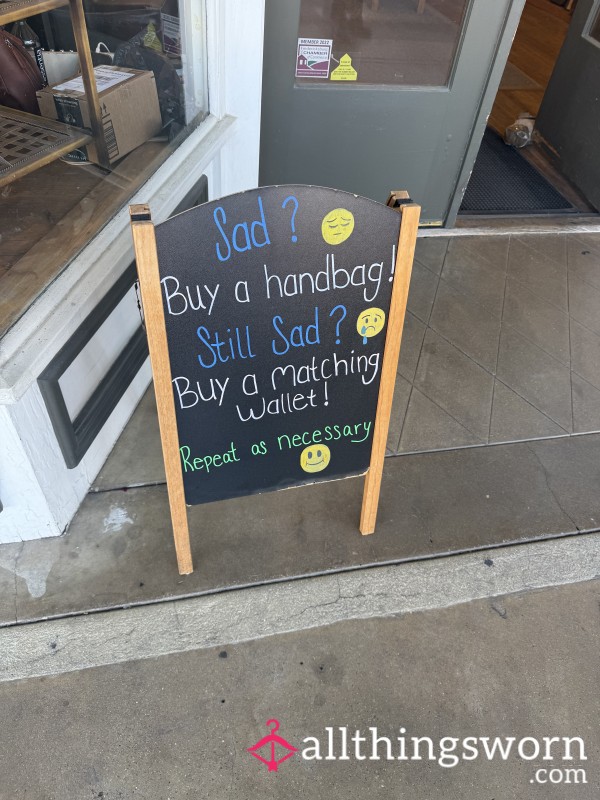 MEMBER 2022
CHAMBER
Sad?
Buy a handbag!
Still Sad?
Buy a Matching
Wallet!
Repeat as necessary
allthingsworn
.com